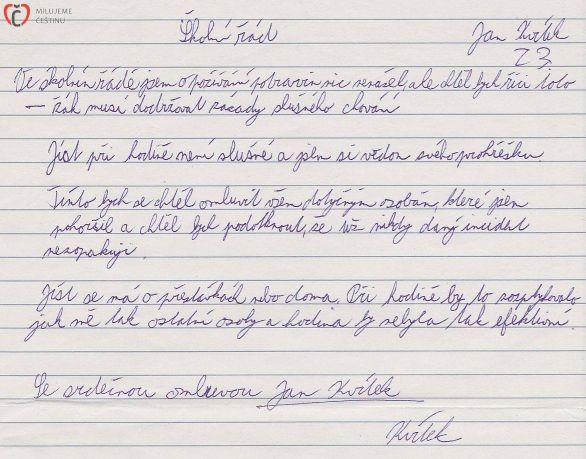 MILUJEME
ČEŠTINU
Školní řád Jan Kvítek
Ve školním řádě jsem o požívání potravin nic nenašel, ale chtěl bych říci toto
– žák musí dodržovat zásady slušného chování
Jíst při hodině není slušné a jsem si vědom svého prohřešku
Tímto bych se chtěl omluvit všem dotyčným osobám, které jsem
pohoršil a chtěl bych podotknout, že již nikdy daný incident
nezopakuji.
Jíst se má o přestávkách nebo doma. Při hodině by to rozptylovalo
jak mě tak ostatní osoby a hodina by nebyla tak efektivní.
Se srdečnou omluvou Jan Kvítek
Kvítek